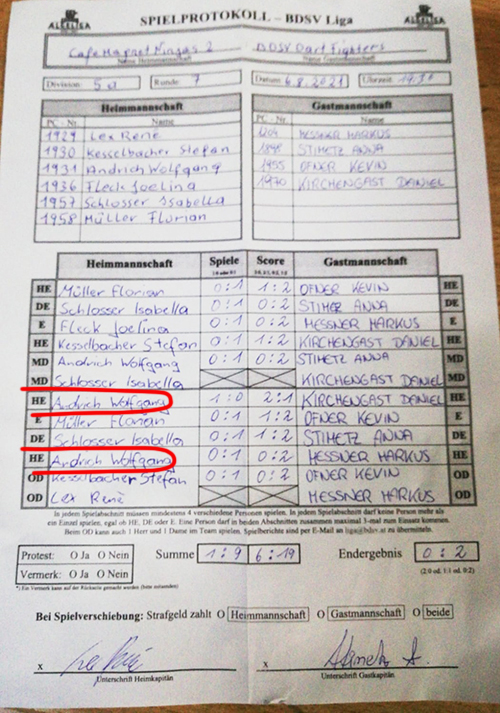 SPIELPROTOKOLL – BDSV Liga
Cafe Magnet Ninjas 2 BDSV Dart Fighters
Name Heimmannschaft Name Gastmannschaft
Division: 5a Runde: 7 Datum: 6.8.2021 Uhrzeit: 19.30
Heimmannschaft Gastmannschaft
PC - Nr. Name PC - Nr. Name
1929 Lex René 1204 MESSNER MARKUS
1930 Kesselbacher Stefan 1898 STIMETZ ANNA
1931 Andrich Wolfgang 1955 OFNER KEVIN
1936 Fleck Joelina 1970 KIRCHENGAST DANIEL
1957 Schlosser Isabella
1958 Müller Florian
Heimmannschaft Spiele Score Gastmannschaft
HE Müller Florian 0:1 1:2 OFNER KEVIN HE
DE Schlosser Isabella 0:1 0:2 STIMETZ ANNA DE
E Fleck Joelina 0:1 0:2 MESSNER MARKUS E
HE Kesselbacher Stefan 0:1 1:2 KIRCHENGAST DANIEL HE
MD Andrich Wolfgang 0:1 0:2 STIMETZ ANNA MD
MD Schlosser Isabella KIRCHENGAST DANIEL MD
HE Andrich Wolfgang 1:0 2:1 KIRCHENGAST DANIEL HE
E Müller Florian 0:1 1:2 OFNER KEVIN E
DE Schlosser Isabella 0:1 1:2 STIMETZ ANNA DE
HE Andrich Wolfgang 0:1 0:2 MESSNER MARKUS HE
OD Kesselbacher Stefan 0:1 0:2 OFNER KEVIN OD
OD Lex René MESSNER MARKUS OD
In jedem Spielabschnitt müssen mindestens 4 verschiedene Personen spielen. In jedem Spielabschnitt darf keine Person mehr als
ein Einzel spielen, egal ob HE, DE oder E. Eine Person darf in beiden Abschnitten zusammen maximal 3-mal zum Einsatz kommen.
Beim OD kann auch 1 Herr und 1 Dame im Team spielen. Spielberichte sind per E-Mail an liga@bdsv.at zu übermitteln.
Protest: O Ja O Nein Summe 1:9 6:19 Endergebnis 0:2
Vermerk: O Ja O Nein (2:0 od. 1:1 od. 0:2)
*) Ein Vermerk kann auf der Rückseite gemacht werden (bitte ankreuzen)
Bei Spielverschiebung: Strafgeld zahlt O Heimmannschaft O Gastmannschaft O beide
x x
Unterschrift Heimkapitän Unterschrift Gastkapitän